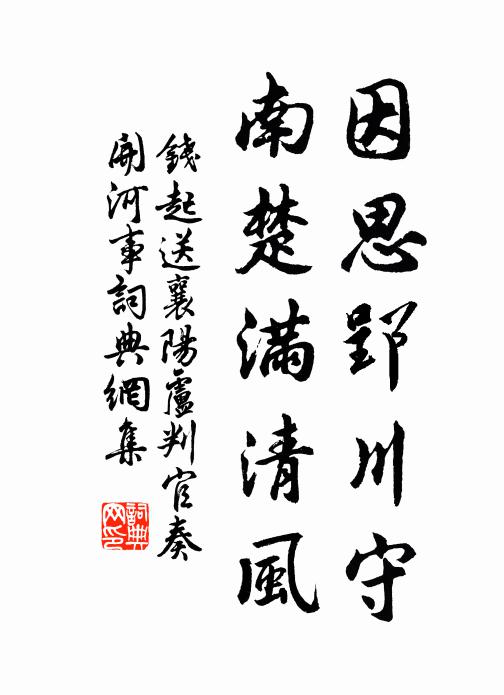 因思郢川守
南楚滿清風
錢起送襄陽盧判官奏
開河事詞典網集
詞典
网印